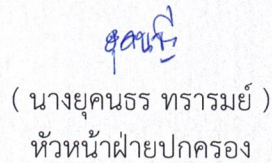 ( นางยุคนธร ทรารมย์ )
หัวหน้าฝ่ายปกครอง